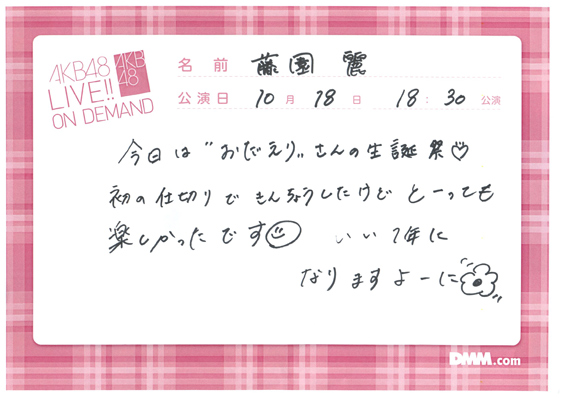 AKB48
LIVE!!
ON DEMAND
AKB
48
名 前 藤園 麗
公演日 10 月 18 日 18 : 30 公演
今日は"おだえり"さんの生誕祭♡
初の仕切りできんちょうしたけどとーっても
楽しかったです いい1年に
なりますよーに
DMM.com